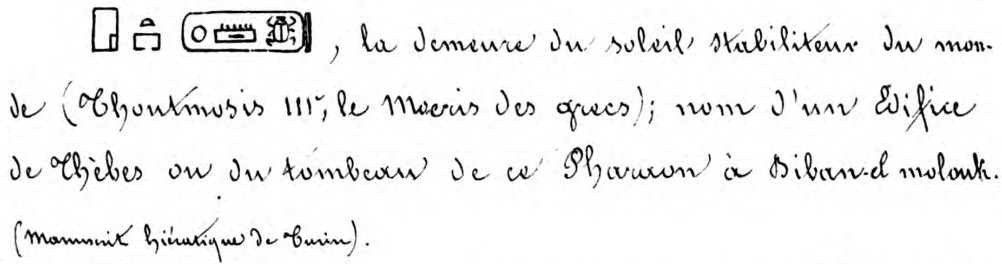 𓉗𓏏𓉐𓍹𓇳𓏠𓆣𓍺, la demeure du soleil stabiliteur du mon-
de (Thoutmosis III<sup>e</sup>, le Mœris des grecs); nom d'un Edifice
de Thèbes ou du tombeau de ce Pharaon à Biban-el molouk.
(Manuscrit hiératique de Turin).